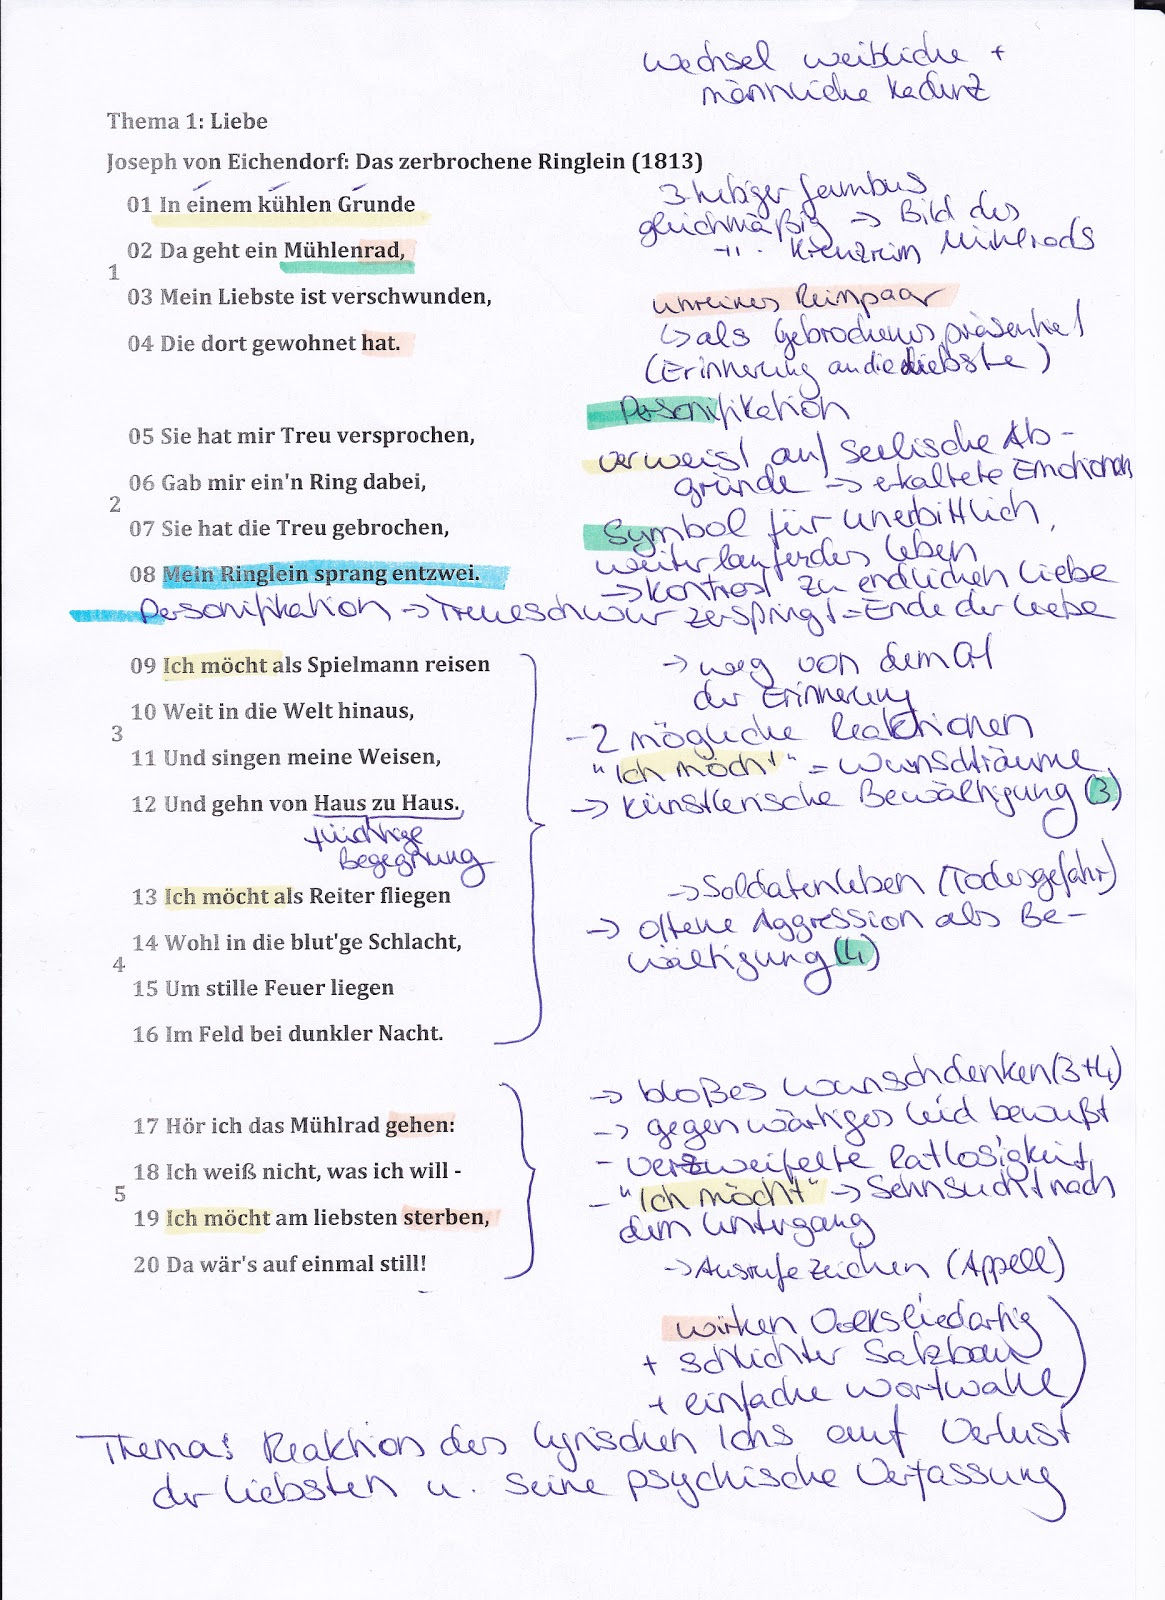 Wechsel weibliche +
männliche Kadenz
Thema 1: Liebe
Joseph von Eichendorf: Das zerbrochene Ringlein (1813)
01 In einem kühlen Grunde
3 hebiger Jambus
gleichmäßig -> Bild des
02 Da geht ein Mühlenrad,
-"- Kreuzreim Mühlrads
1
03 Mein Liebste ist verschwunden,
unreines Reimpaar
04 Die dort gewohnet hat.
↳ als Gebrochenes präsentiert
(Erinnerung an die Liebste)
Personifikation
05 Sie hat mir Treu versprochen,
verweist auf seelische Ab-
06 Gab mir ein'n Ring dabei,
gründe -> erkaltete Emotionen
2
07 Sie hat die Treu gebrochen,
Symbol für unerbittlich,
weiterlaufendes Leben
08 Mein Ringlein sprang entzwei.
-> Kontrast zu endlichen Liebe
Personifikation -> Treueschwur zerspringt = Ende der Liebe
09 Ich möcht als Spielmann reisen
-> weg von dem Ort
der Erinnerung
10 Weit in die Welt hinaus,
- 2 mögliche Reaktionen
3
11 Und singen meine Weisen,
"Ich möcht" = Wunschträume
12 Und gehn von Haus zu Haus.
-> künstlerische Bewältigung (3)
flüchtige
Begegnung
13 Ich möcht als Reiter fliegen
-> Soldatenleben (Todesgefahr)
14 Wohl in die blut'ge Schlacht,
-> offene Aggression als Be-
wältigung (4)
4
15 Um stille Feuer liegen
16 Im Feld bei dunkler Nacht.
-> bloßes Wunschdenken (3+4)
17 Hör ich das Mühlrad gehen:
-> gegenwärtiges Leid bewußt
18 Ich weiß nicht, was ich will -
- verzweifelte Ratlosigkeit
5
19 Ich möcht am liebsten sterben,
- "Ich möcht" -> Sehnsucht nach
dem Untergang
20 Da wär's auf einmal still!
-> Ausrufezeichen (Appell)
wirken Volksliedartig
+ schlichter Satzbau
+ einfache Wortwahl
Thema: Reaktion des lyrischen Ichs auf Verlust
der Liebsten u. seine psychische Verfassung